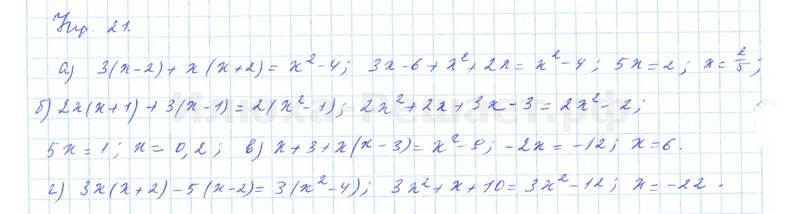 Упр. 21.
а) 3(x-2)+x(x+2)=x²-4; 3x-6+x²+2x=x²-4; 5x=2; x=2/5;
б) 2x(x+1)+3(x-1)=2(x²-1); 2x²+2x+3x-3=2x²-2;
5x=1; x=0,2; в) x+3+x(x-3)=x²-9; -2x=-12; x=6.
г) 3x(x+2)-5(x-2)=3(x²-4); 3x²+x+10=3x²-12; x=-22.